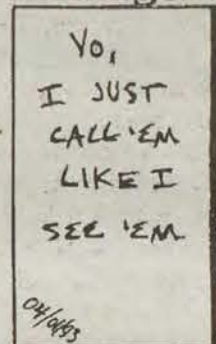 Yo,
I JUST
CALL 'EM
LIKE I
SEE 'EM
04/01/93